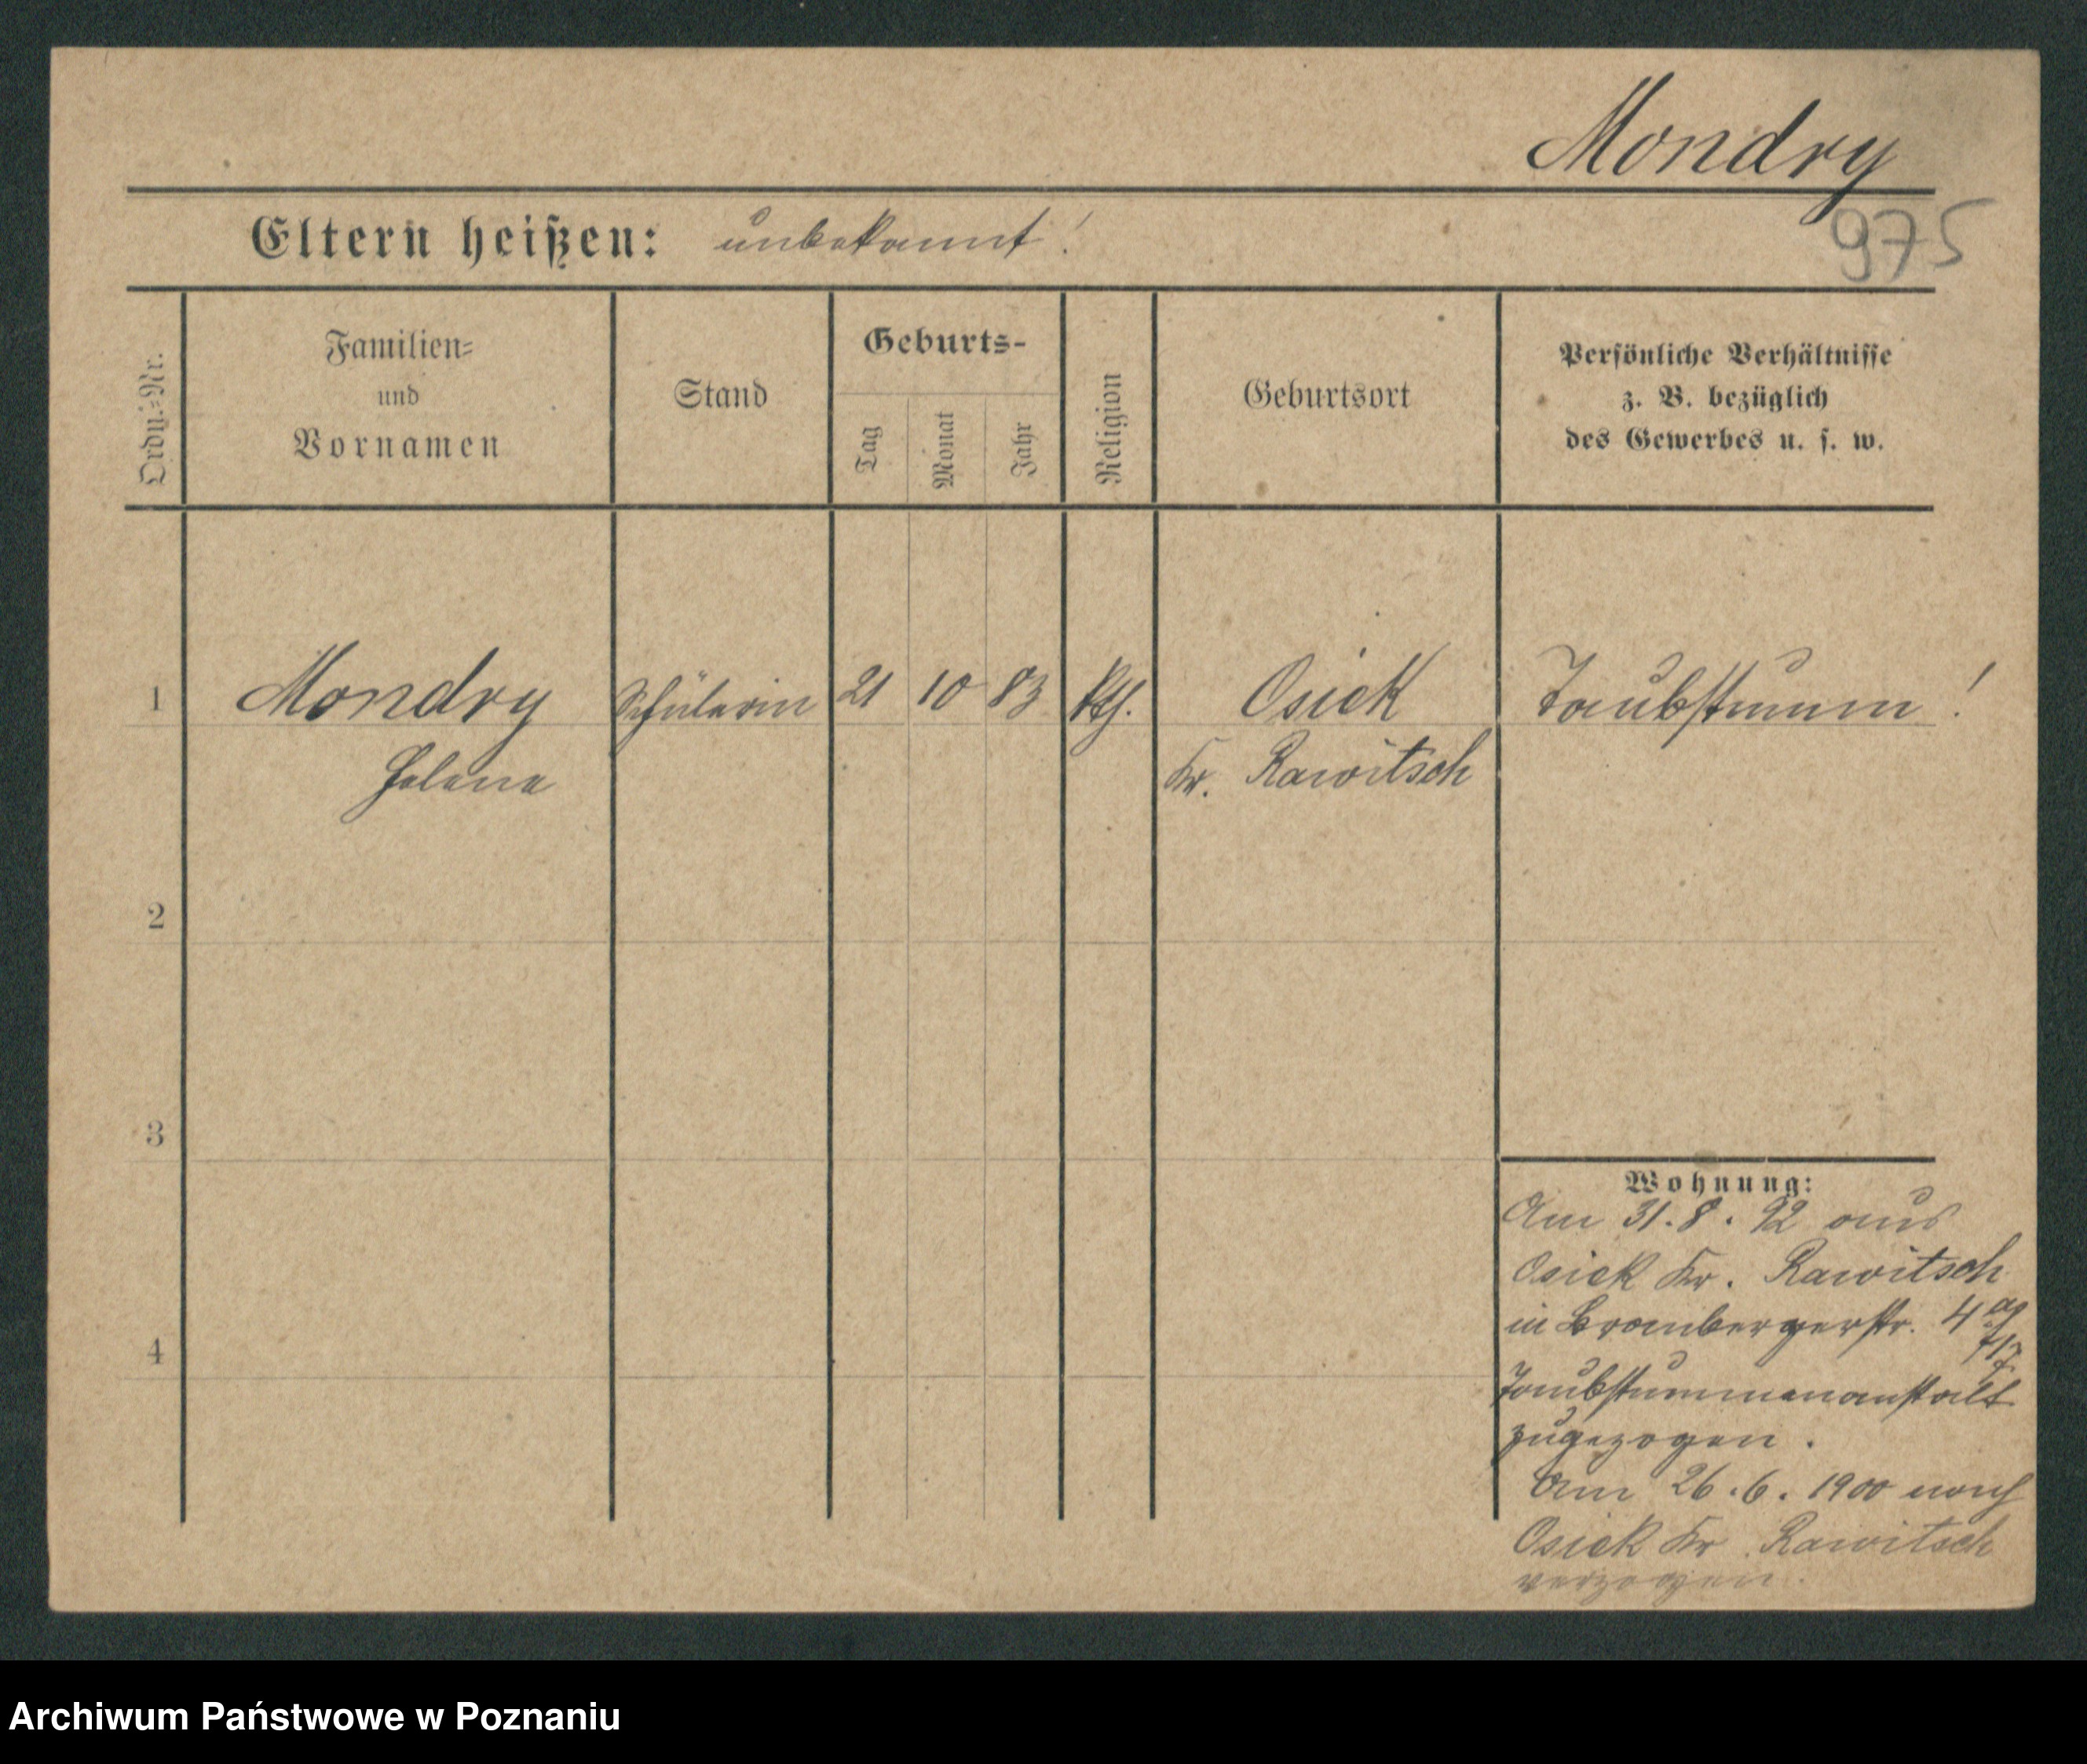 Mondry
975
Eltern heißen: unbekannt!
Ordn.-Nr.
Familien-
und
Vornamen
Stand
Geburts-
Tag
Monat
Jahr
Religion
Geburtsort
Persönliche Verhältnisse
z. B. bezüglich
des Gewerbes u. s. w.
1 Mondry Schülerin 21 10 83 kth. Osiek Taubstumm!
Helena Kr. Rawitsch
2
3
4
Wohnung:
Am 31.8.92 aus
Osiek Kr. Rawitsch
in Brombergerstr. 4
Taubstummenanstalt
zugezogen.
Am 26.6.1900 nach
Osiek Kr. Rawitsch
verzogen.
Archiwum Państwowe w Poznaniu